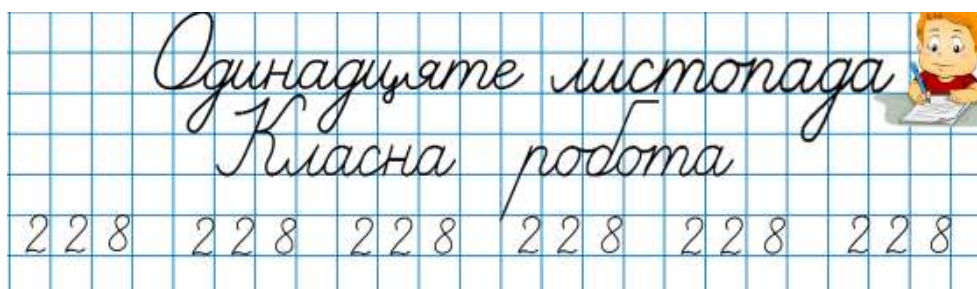 Одинадцяте листопада
Класна робота
228 228 228 228 228 228